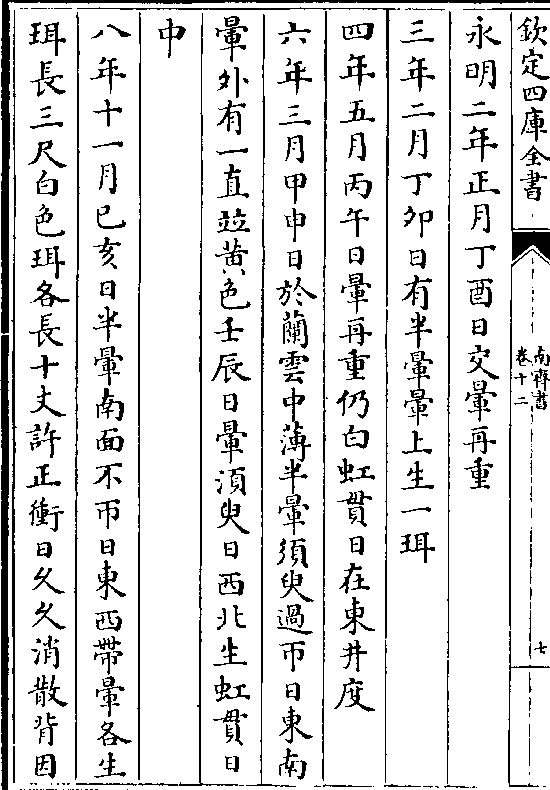 欽定四庫全書
南齊書
卷十二
七
永明二年正月丁酉日交暈再重
三年二月丁卯日有半暈暈上生一珥
四年五月丙午日暈再重仍白虹貫日在東井度
六年三月甲申日於蘭雲中薄半暈須臾過帀日東南
暈外有一直並黄色壬辰日暈湏臾日西北生虹貫日
中
八年十一月己亥日半暈南面不帀日東西帶暈各生
珥長三尺白色珥各長十丈許正衝日久久消散背因